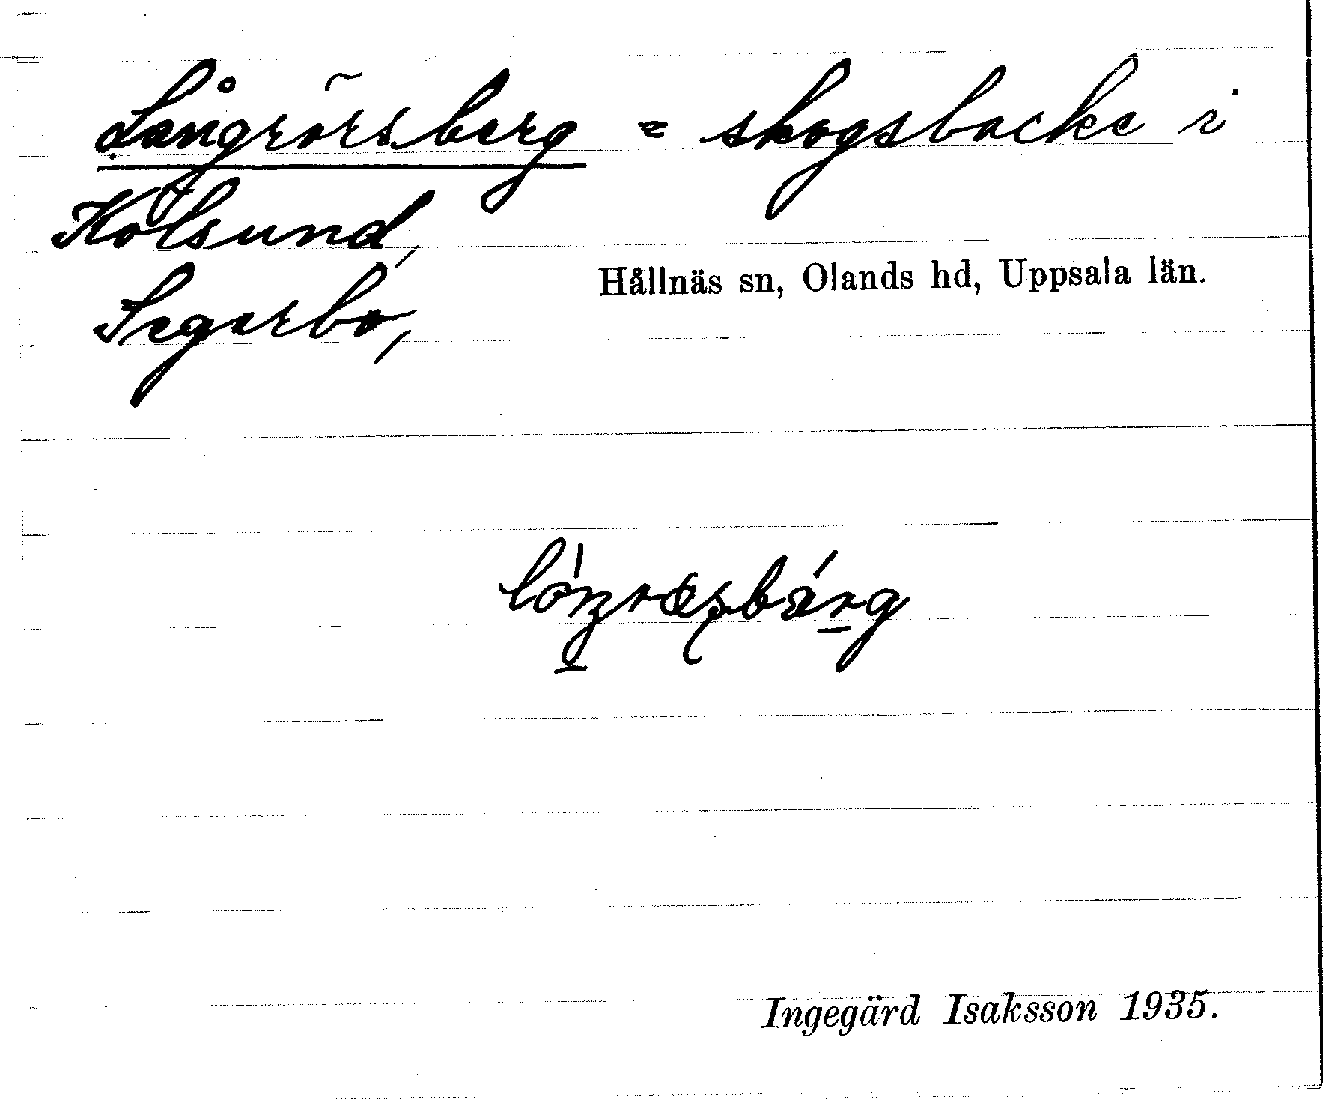 Långrörsberg = skogsbacke i
Kolsund,
Hållnäs sn, Olands hd, Uppsala län.
Segerbo,
Ingegärd Isaksson 1935.